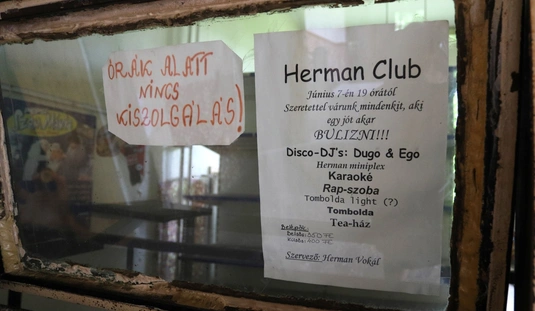 ÓRÁK ALATT
NINCS
KISZOLGÁLÁS!
Herman Club
Június 7-én 19 órától
Szeretettel várunk mindenkit, aki
egy jót akar
BULIZNI!!!
Disco-DJ's: Dugó & Egó
Herman miniplex
Karaoké
Rap-szoba
Tombolda light (?)
Tombolda
Tea-ház
Szervező: Herman Vokál